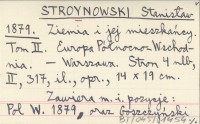 STROYNOWSKI Stanisław
1879. Ziemia i jej mieszkańcy.
Tom II. Europa Północno Wschod-
nia. — Warszawa. Stron 4 nlb,
II, 317, il., opr., 14 x 19 cm.
Zawiera m. i. pozycje:
Pol W. 1879, oraz Goszczyński